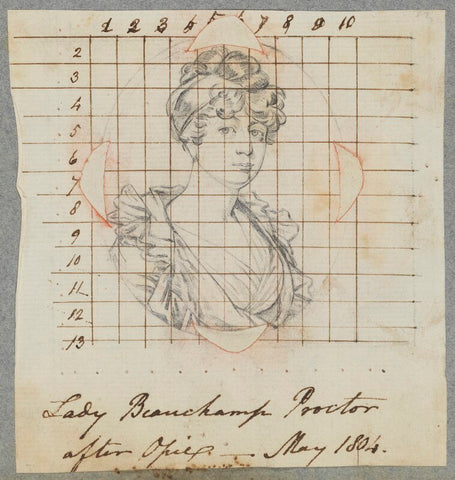 1 2 3 4 5 6 7 8 9 10
2
3
4
5
6
7
8
9
10
11
12
13
Lady Beauchamp Proctor
after Opie — May 1804.